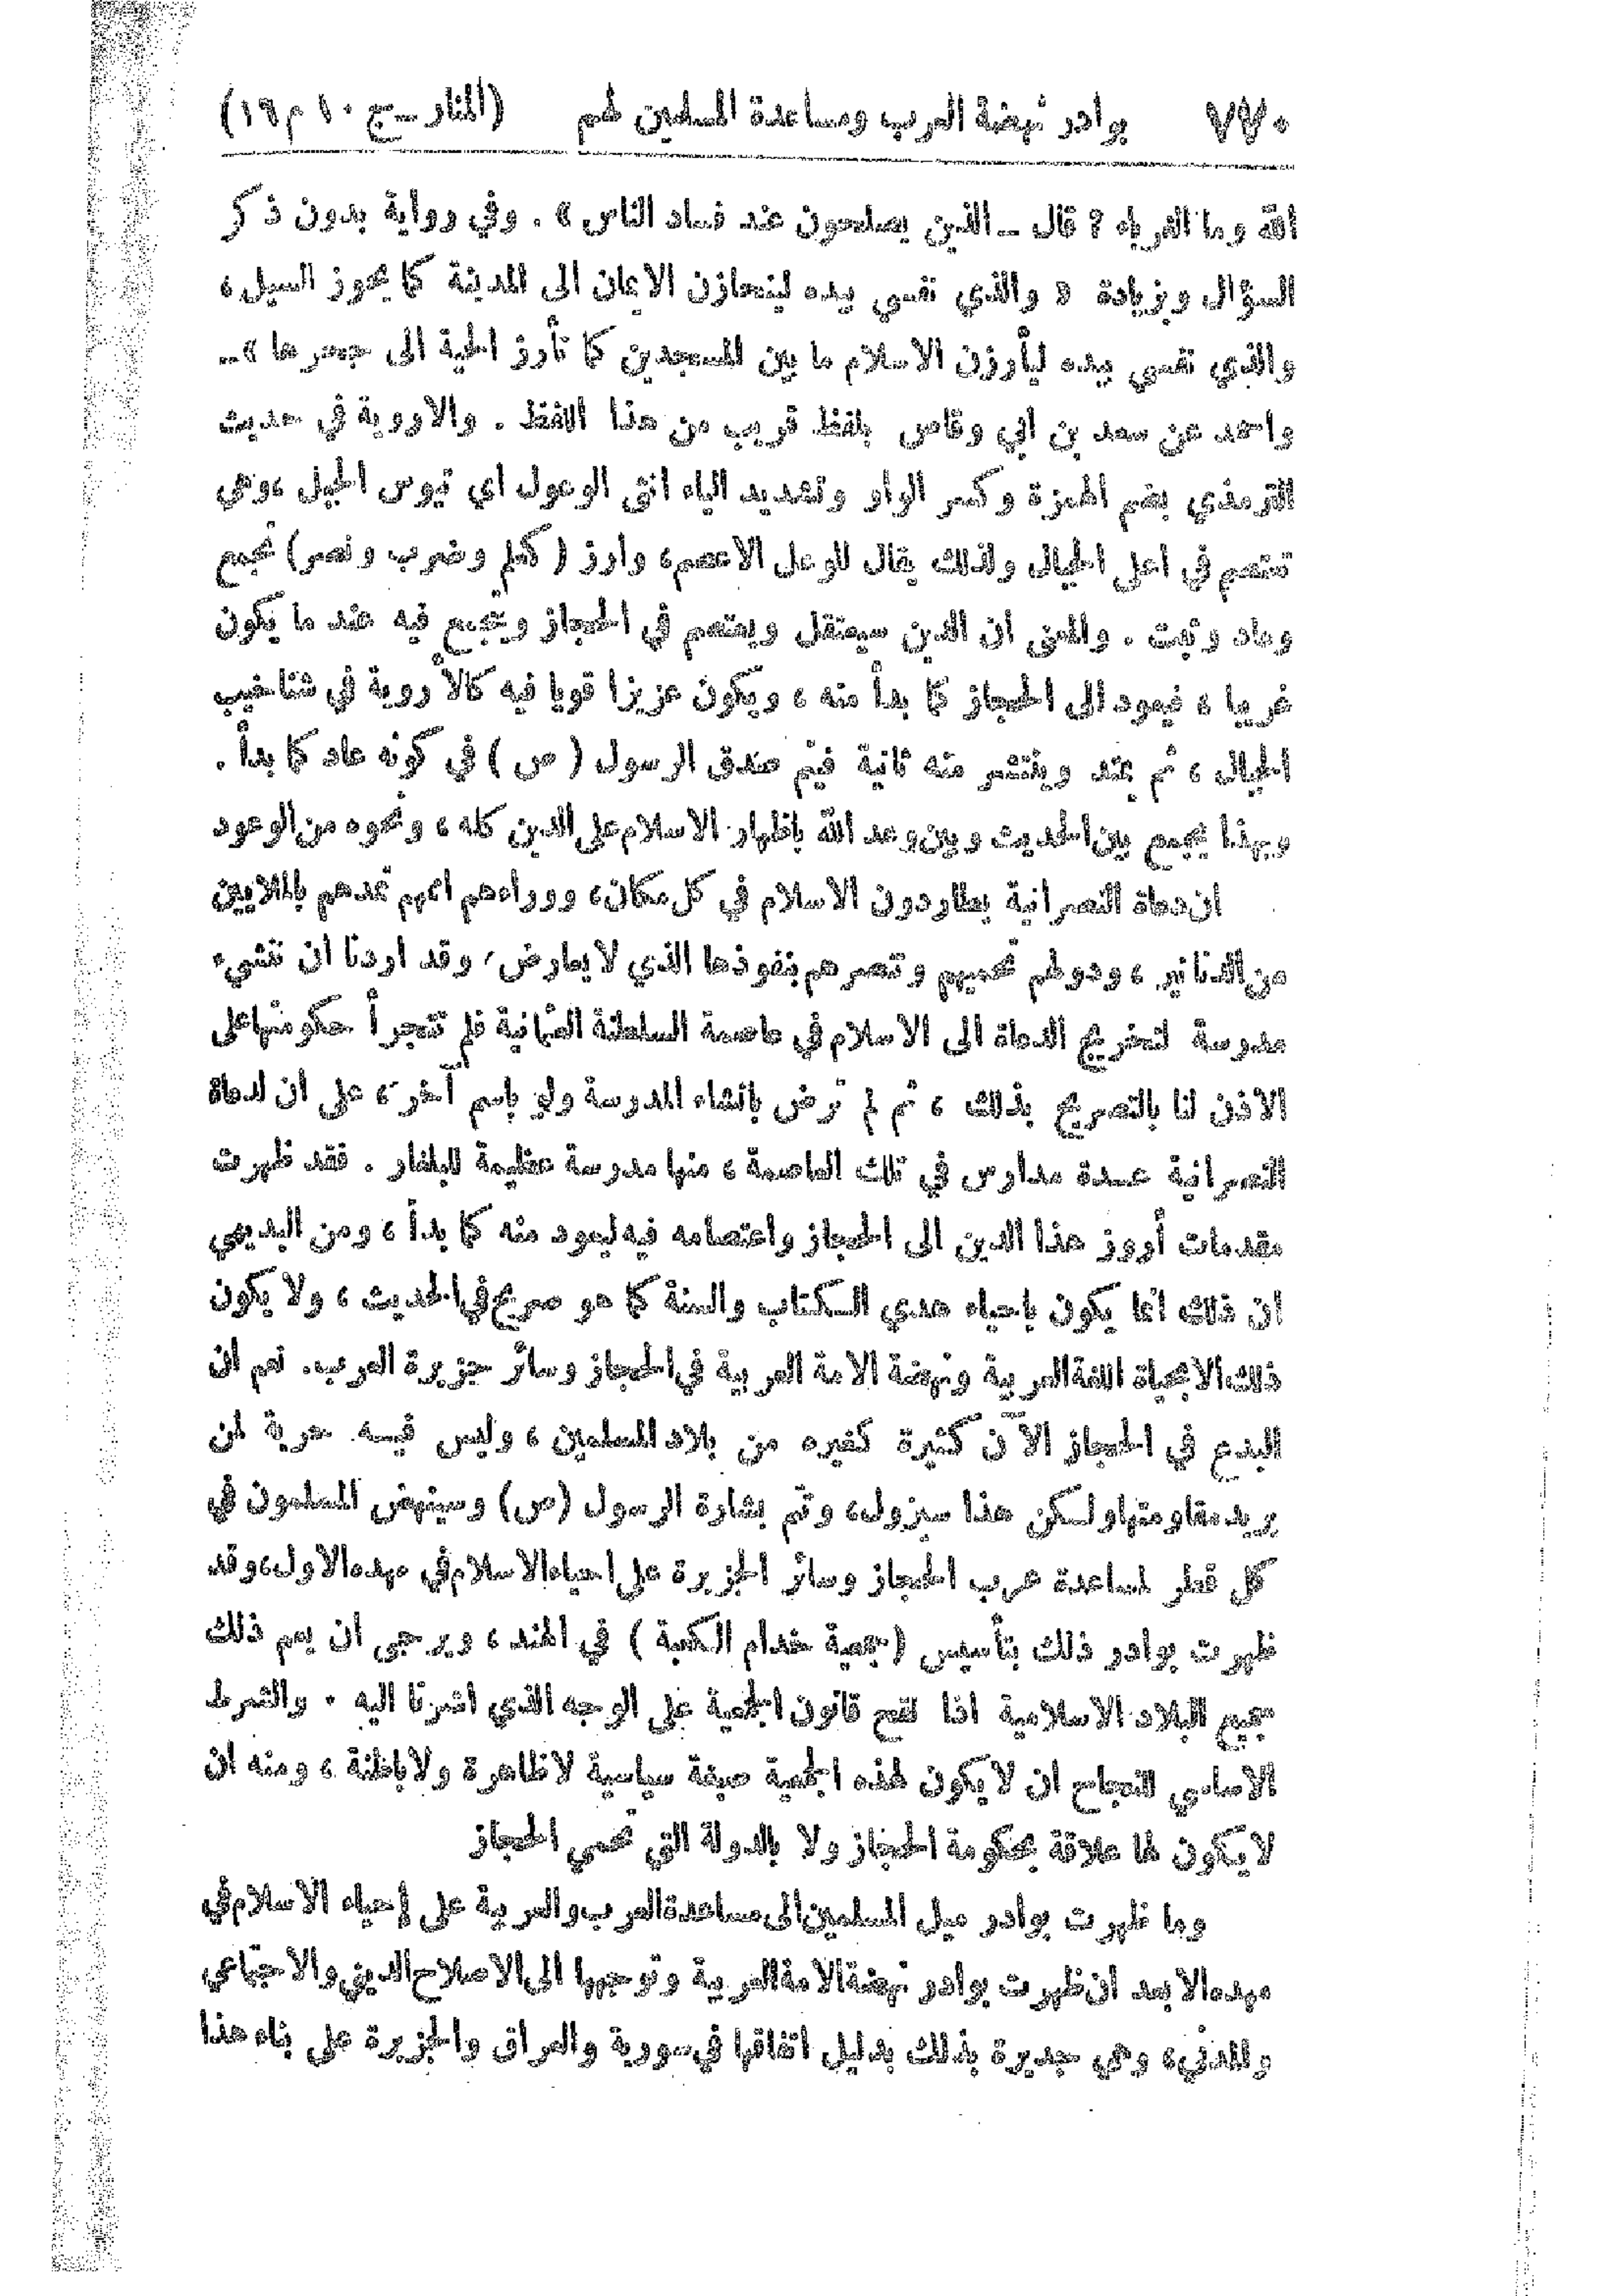 ٧٧٠ بوادر نهضة العرب ومساعدة المسلمين لهم (المنار ـ ج ١٠ م ١٦)
الله وما الغرباء ؟ قال ـ الذين يصلحون عند فساد الناس » . وفي رواية بدون ذكر
السؤال وبزيادة « والذي نفسي بيده لينحازن الايمان الى المدينة كما يحوز السيل ،
والذي نفسي بيده ليأرزن الاسلام ما بين المسجدين كما تأرز الحية الى جحرها » ـ
واحمد عن سعد بن ابي وقاص بلفظ قريب من هذا اللفظ . والاروية في حديث
الترمذي بضم الهمزة وكسر الواو وتشديد الياء انثى الوعول اي تيوس الجبل ، وهي
تعتصم في اعلى الجبال ولذلك يقال للوعل الاعصم ، وارز ( كعلم وضرب ونصر ) تجمع
وعاد وثبت . والمعنى ان الدين سيعتقل ويعتصم في الحجاز ويجتمع فيه عند ما يكون
غريبا ، فيعود الى الحجاز كما بدأ منه ، ويكون عزيزا قويا فيه كالأروية في شناخيب
الجبال ، ثم يمتد وينتشر منه ثانية فيتم صدق الرسول ( ص ) في كونه عاد كما بدأ .
وبهذا يجمع بين الحديث وبين وعد الله باظهار الاسلام على الدين كله ، ونحوه من الوعود
ان دعاة النصرانية يطاردون الاسلام في كل مكان ، ووراءهم اممهم تمدهم بالملايين
من الدنانير ، ودولهم تحميهم وتنصرهم بنفوذها الذي لا يعارض ، وقد اردنا ان ننشيء
مدرسة لتخريج الدعاة الى الاسلام في عاصمة السلطنة العثمانية فلم تتجرأ حكومتها على
الاذن لنا بالتصريح بذلك ، ثم لم ترض بانشاء المدرسة ولو باسم آخر ، على ان لدعاة
النصرانية عدة مدارس في تلك العاصمة ، منها مدرسة عظيمة للبلغار . فقد ظهرت
مقدمات أروز هذا الدين الى الحجاز واعتصامه فيه ليعود منه كما بدأ ، ومن البديهي
ان ذلك انما يكون باحياء هدي الكتاب والسنة كما هو صريح في الحديث ، ولا يكون
ذلك الا بحياة اللغة العربية ونهضة الامة العربية في الحجاز وسائر جزيرة العرب. نعم ان
البدع في الحجاز الآن كثيرة كغيره من بلاد المسلمين ، وليس فيه حرية لمن
يريد مقاومتها ولكن هذا سيزول ، وتتم بشارة الرسول (ص) وسينهض المسلمون في
كل قطر لمساعدة عرب الحجاز وسائر الجزيرة على احياء الاسلام في مهده الاول ، وقد
ظهرت بوادر ذلك بتأسيس (جمعية خدام الكعبة ) في الهند ، ويرجى ان يعم ذلك
جميع البلاد الاسلامية اذا نقح قانون الجمعية على الوجه الذي اشرنا اليه ٠ والشرط
الاساسي للنجاح ان لا يكون لهذه الجمعية صبغة سياسية لا ظاهرة ولا باطنة ، ومنه ان
لا يكون لها علاقة بحكومة الحجاز ولا بالدولة التي تحمي الحجاز
وما ظهرت بوادر ميل المسلمين الى مساعدة العرب والعربية على إحياء الاسلام في
مهده الا بعد ان ظهرت بوادر نهضة الامة العربية وتوجهها الى الاصلاح الديني والاجتماعي
والمدني ، وهي جديرة بذلك بدليل اتفاقها في سورية والعراق والجزيرة على بناء هذا